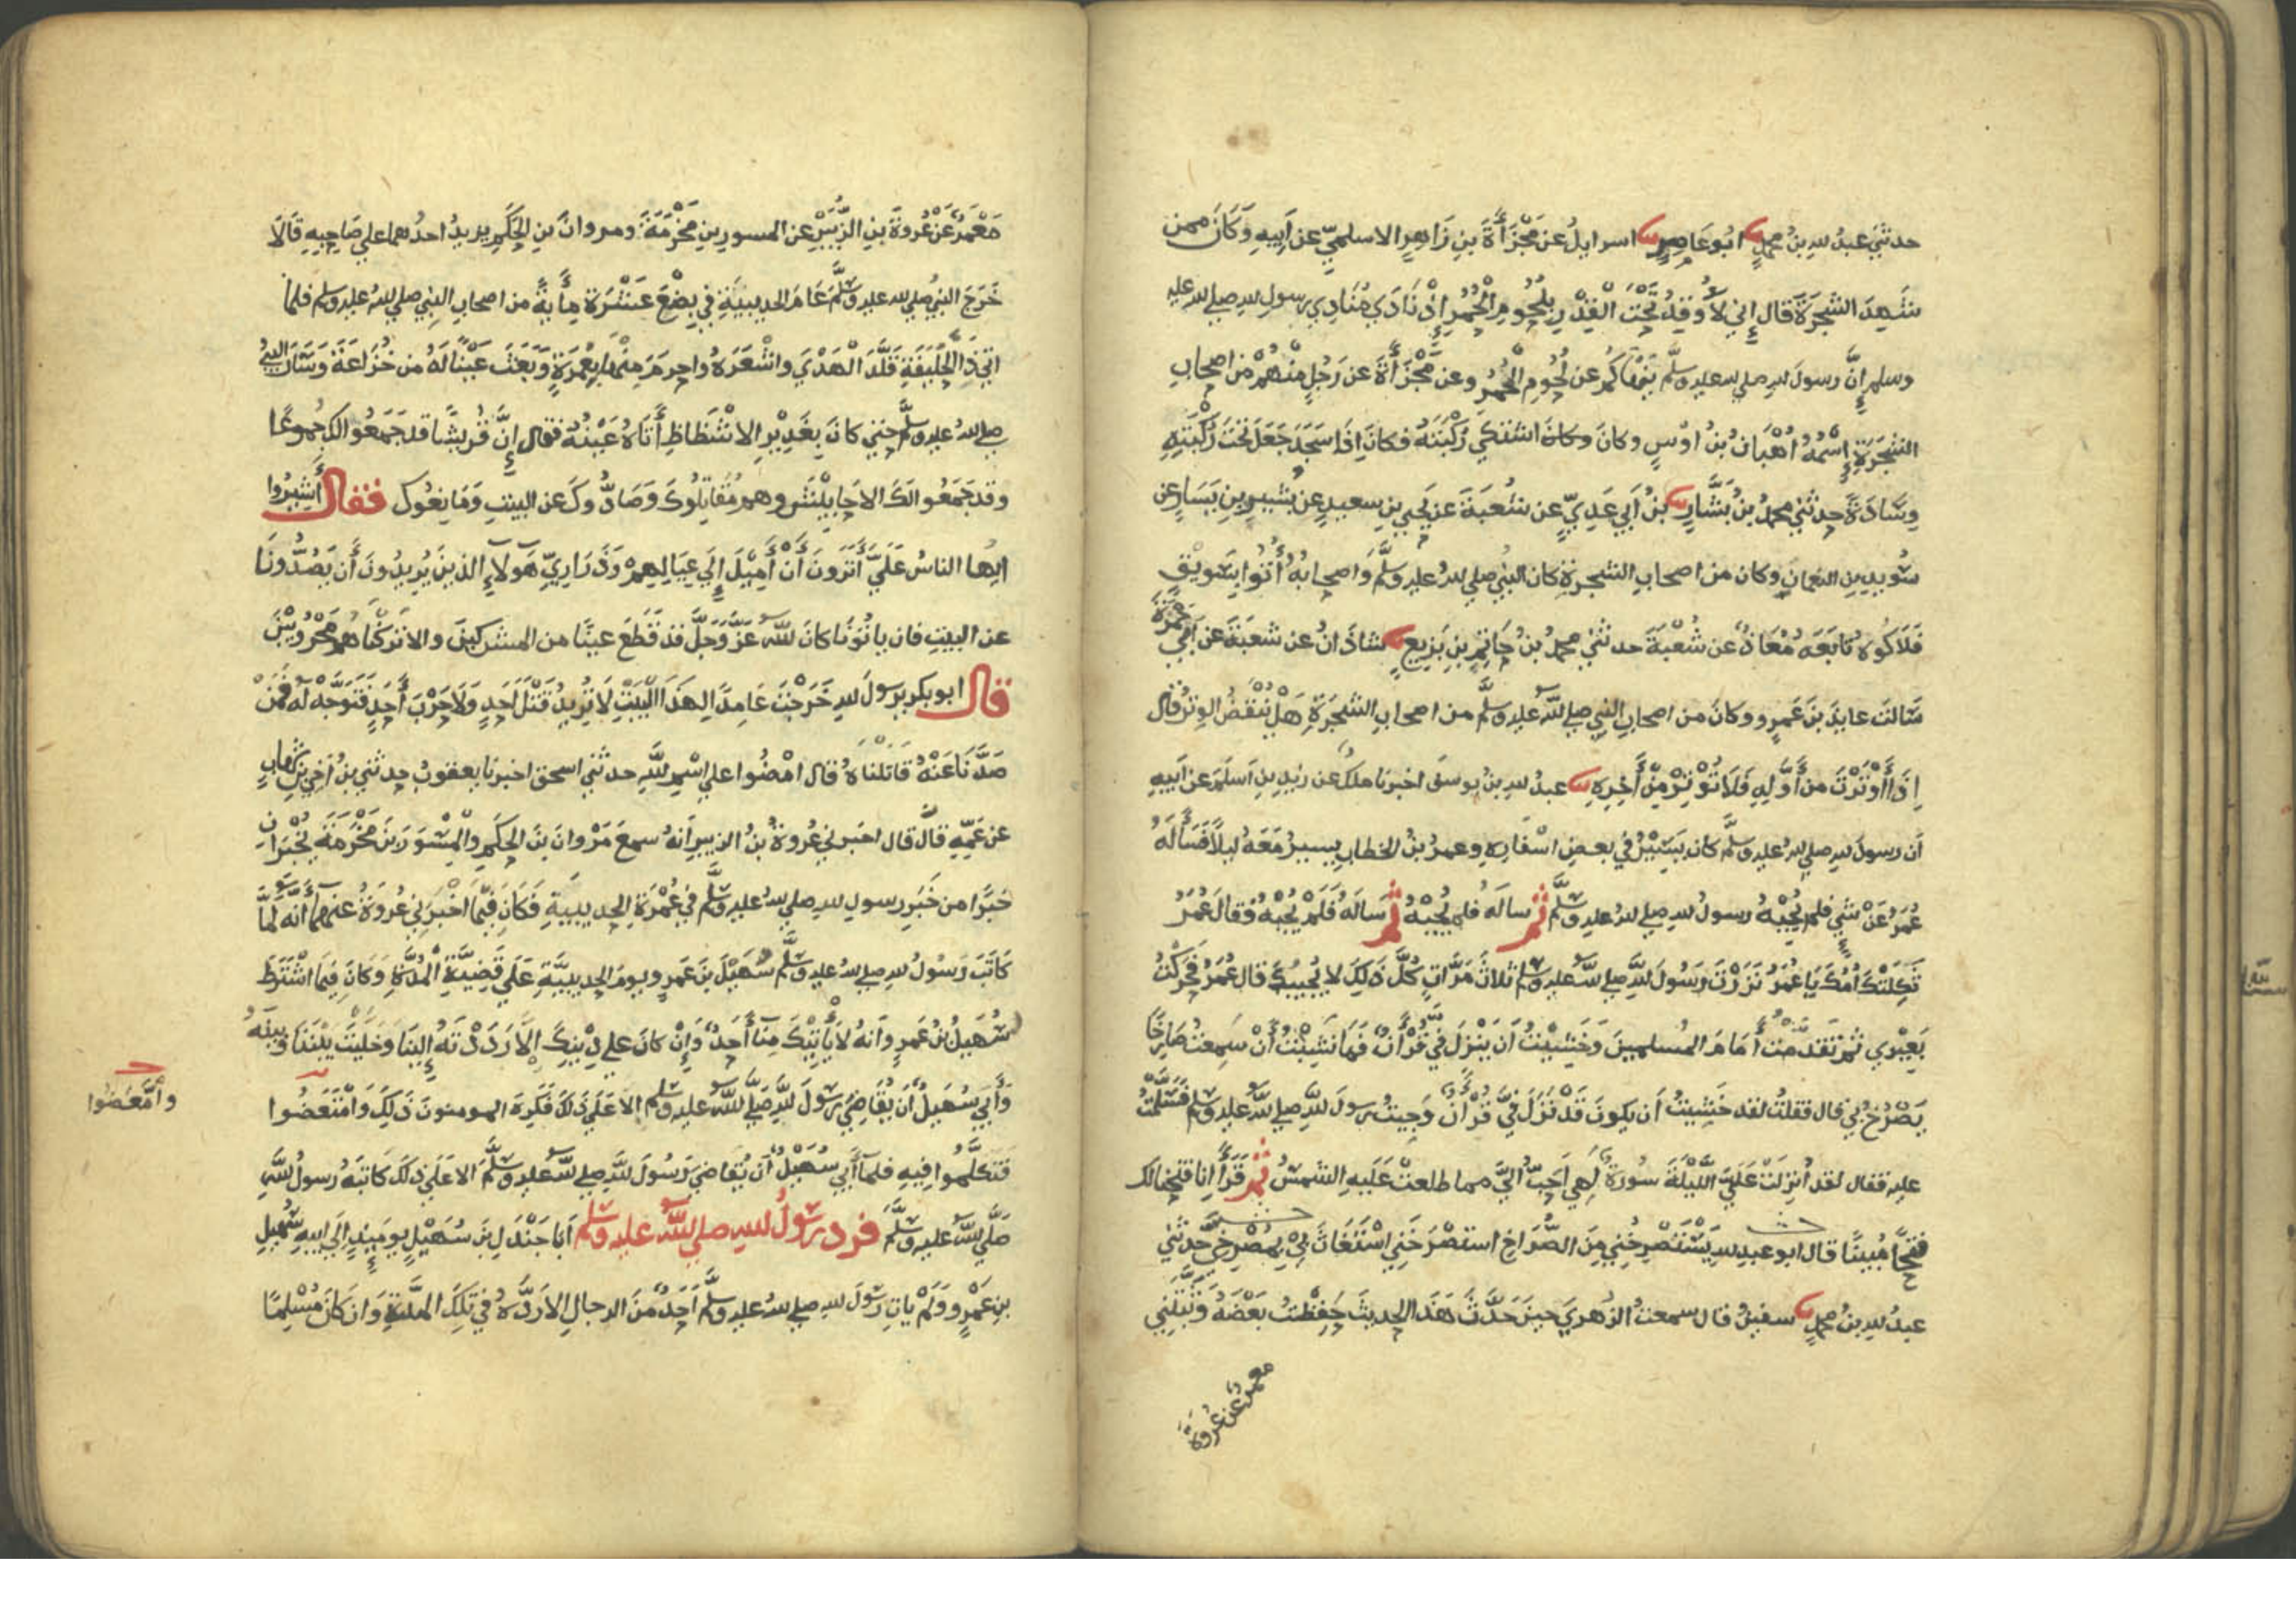 حدثني عبدُ لله بنُ محمدٍ ابُو عَامِرٍ اسرايلُ عن مَجْزَأَةَ بنِ زَاهِرٍ الاسلميّ عن اَبيهِ وَكَانَ ممن
شَهِدَ الشجرَةَ قال إني لَأُوقِدُ تَحْتَ الْقِدْرِ بِلُحُومِ الْحُمُرِ إِذْ نَادَي مُنَادِي رسولِ للهِ صلي لله عليه
وسلم إِنَّ رسولَ للهِ صلي لله عليه وسلَّم يَنْهَاكُمْ عن لُحُومِ الْحُمُرِ وعن مَّجْزَأَةَ عن رَجُلٍ مِنْهُمْ من اصحابِ
الشجَرَةِ إِسْمُهُ اُهْبَانُ بْنُ اوْسٍ وكانَ وكان اشتكي رُكْبَتَهُ فكانَ اِذَا سَجَدَ جَعَلَ تحْتَ رُكْبَتِهِ
وِسَادَةً حدثني محمدُ بنُ بَشَّارٍ بنُ اَبي عَدِيّ عن شُعبَةَ عن يَحْيَي بنِ سعيدٍ عن بُشَيرِ بنِ يَسَارٍ عن
سُوَيدِ بنِ النعمانِ وكان من اصحابِ الشجرةِ كان النبيُ صلي للهُ عليه وسلَّم وَاصحابهُ أُتُوا بِسَوِيْقٍ
فَلَاكُوهُ تَابَعَهُ مُعَاذٌ عن شُعْبَةَ حدثني محمدُ بنُ حَاتِمِ بنِ بَزِيعٍ شاذانُ عن شعبَةَ عن اَبي جَمْرَةَ
سَالتُ عايذَ بنَ عَمرٍو وكانَ من اصحابِ النبي صلي لله عليه وسلَّم من اصحابِ الشجرَةِ هَلْ يُنْقَضُ الوِترُ قال
اِذَا أَوْتَرْتَ من أَوَّلِهِ فَلَا تُوْتِرْ مِنْ أَخِرِهِ عبدُ للهِ بنُ يوسفَ اخبرنا ملكٌ عن زيدِ بنِ اَسلَمَ عن اَبيهِ
اَن رسولَ للهِ صلي للهُ عليه وسلَّم كان يَسِيْرُ في بعضِ اسْفَارِهِ وعمرُ بنُ الخطابِ يسيرُ مَعَهُ ليلًا فَسَألَهُ
عُمَرُ عَنْ شيءٍ فلم يُجِبْهُ رسولُ للهِ صلي للهُ عليه وسلَّم ثم سالَهُ فلم يُجِبْهُ ثم سالَهُ فَلَمْ يُجِبْهُ فقال عُمَرُ
ثَكِلَتْكَ اُمُّكَ يَا عُمَرُ نَزَرْتَ رَسُولَ للهِ صلي لله عليه وسلم ثلاثَ مَرَّاتٍ كُلَّ ذَلِكَ لا يُجِيبُكَ قال عُمَرُ فحَرَّكْتُ
بَعِيْرِي ثم تَقَدَّمْتُ أَمَامَ المُسلمينَ وَخَشِيْتُ اَنْ يَنْزِلَ فيَّ قُرْأنٌ فَمَا نَشِبْتُ أَنْ سَمِعتُ صَارِخًا
يَصْرُخُ بي قال فقلتُ لقد خَشِيتُ أَن يكونَ قَدْ نَزَلَ فيَّ قُرْأنٌ وَجِيتُ رسولَ للهِ صلي لله عليه وسلم فسَلَّمتُ
عليه فقال لقد اُنزِلَتْ عَلَيَّ اللَّيْلَةَ سُورَةٌ لَهِي اَحَبُّ اليَّ مما طلعتْ عَلَيهِ الشمسُ ثم قَرَأَ اِنا فتحنا لك
فتحًا مُبِينًا قال ابو عبدِ للهِ يَسْتَصْرِخُنِي مِنَ الصُّرَاخِ استصْرَخَنِي اسْتَغَاثَ بِي بِمُصْرِخِيَّ حدثني
عبدُ للهِ بنُ محمدٍ سفينُ قال سمعتُ الزهريَّ حينَ حَدَّثَ هَذَا الحديثَ حَفِظْتُ بَعْضَهُ وَثَبَّتَنِي
معمرٌ عن عُروةَ
مَعْمَرٌ عَنْ عُروةَ بنِ الزُّبَيْرِ عن المسورِ بنِ مَخْرَمَةَ ومروانَ بنِ الحكَمِ يزيدُ احدُهما علي صَاحِبِهِ قَالَا
خَرَجَ النبيُ صلي لله عليه وسلَّم عَامَ الحديبيةِ في بِضْعَ عَشْرَةَ مِأَيةً من اصحابِ النبي صلي للهُ عليه وسلم فلما
اتي ذَا الْحُلَيْفَةِ قَلَّدَ الْهَدْيَ واشْعَرَهُ واحرمَ مِنْهَا بِعُمْرَةٍ وَبَعَثَ عَيْنًا لَهُ من خُزَاعَةَ وَسَارَ النبيُّ
صلي للهُ عليه وسلَّم حتي كانَ بِغَدِيْرِ الاشْظَاظِ أَتَاهُ عَيْنُهُ فقال إِنَّ قُريشًا قد جَمَعُوا لك جُموعًا
وقد جَمَعُوا لكَ الاحَابِيْشَ وهم مُقَاتِلُوكَ وَصَادُّوكَ عن البيتِ وَمَانِعُوك فقال أَشِيرُوا
ايها الناسُ عَلَيَّ أَتَرَونَ أَنْ أَمِيْلَ إِلَي عِيَالِهِمْ وَذَرَارِيّ هَولآءِ الذينَ يُرِيدُونَ أَنْ يَصُدُّونَا
عن البيتِ فان يانُونَا كانَ للهُ عَزَّ وَجَلَّ قد قَطَعَ عينًا من المشركينَ والا تَرَكْنَاهُم مَحْرُوبِيْنَ
قال ابو بكرٍ يرسولَ للهِ خَرَجْتَ عَامِدًا لِهَذَا الْبَيْتِ لَا تُرِيدُ قَتْلَ أَحَدٍ وَلَا حَرْبَ أَحَدٍ فَتَوَجَّهْ لَه فَمَنْ
صَدَّنَا عَنْهُ قَاتَلْنَاهُ قال امْضُوا علي اسْمِ للهِ حدثني اسحق اخبرنا يعقوبُ حدثني بنُ اَخي بنِ شهابٍ
عن عَمِّهِ قال قال اخبرني عُروةُ بنُ الزبيرِ اَنهُ سمعَ مَرْوانَ بنَ الحكمِ والْمِسْوَرَ بنَ مَخْرَمَةَ يُخْبِرَانِ
خَبَرًا من خَبَرِ رسولِ للهِ صلي للهُ عليه وسلَّم في عُمْرَةِ الحديبيةِ فَكَانَ فيما اَخْبَرَنِي عُروةُ عنهما أَنَّهُ لمَّا
كَاتَبَ رَسُولُ للهِ صلي للهُ عليه وسلَّم سُهَيْلَ بنَ عَمرٍو يومَ الحديبيَّةِ عَلَي قَضِيَّةِ الْمُدَّةِ وَكَانَ فِيمَا اشْتَرَطَ
سُهَيلُ بنُ عَمرٍو اَنهُ لَا يَأْتِيْكَ مِنَّا أَحَدٌ وَإِنْ كانَ علي دِيْنِكَ الَّا رَدَدْتَهُ إِلينَا وَخَلَّيْتَ بَيْنَنَا وبينَهُ
وَأَبَي سُهَيلٌ أَن يُقَاضِيَ رسُولَ للهِ صَلَّي للهُ عليه وسلم الا عَلَي ذلكَ فَكَرِهَ المومنونَ ذَلِكَ وَامْتَعَضُوا
وامَّعَضُوا
فَتَكَلَّمُوا فِيهِ فلما أَبي سُهَيْلٌ اَن يُقاضيَ رَسُولَ للهِ صلي لله عليه وسلَّم الا عَلَي ذلكَ كَاتَبَهُ رسولُ للهِ
صَلَّي للهُ عليه وسلَّم فرد رسُولُ للهِ صلي للهُ عليه وسلم اَبا جَنْدَلِ بنَ سُهَيْلٍ يوميذٍ إِلَي ابيهِ سُهيلِ
بنِ عَمْرٍو وَلَمْ ياتِ رَسُولَ للهِ صلي للهُ عليه وسلَّم أَحَدٌ منَ الرجالِ الا رَدَّهُ في تلكَ المدَّةِ وَان كَانَ مُسْلِمًا